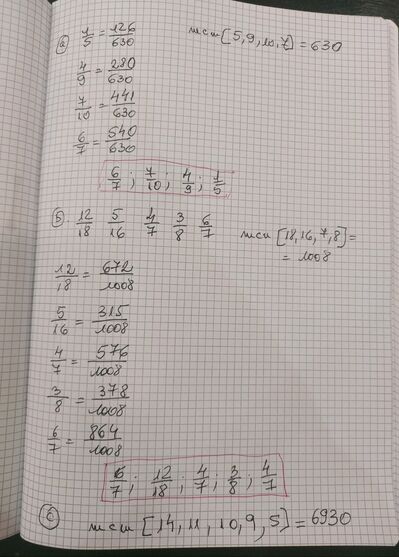 a) 1/5 = 126/630 нсм [5, 9, 10, 7] = 630
4/9 = 280/630
7/10 = 441/630
6/7 = 540/630
6/7 ; 7/10 ; 4/9 ; 1/5
б) 12/18 5/16 4/7 3/8 6/7 нсм [18, 16, 7, 8] =
= 1008
12/18 = 672/1008
5/16 = 315/1008
4/7 = 576/1008
3/8 = 378/1008
6/7 = 864/1008
6/7 ; 12/18 ; 4/7 ; 3/8 ; 4/7
c) нсм [14, 11, 10, 9, 5] = 6930